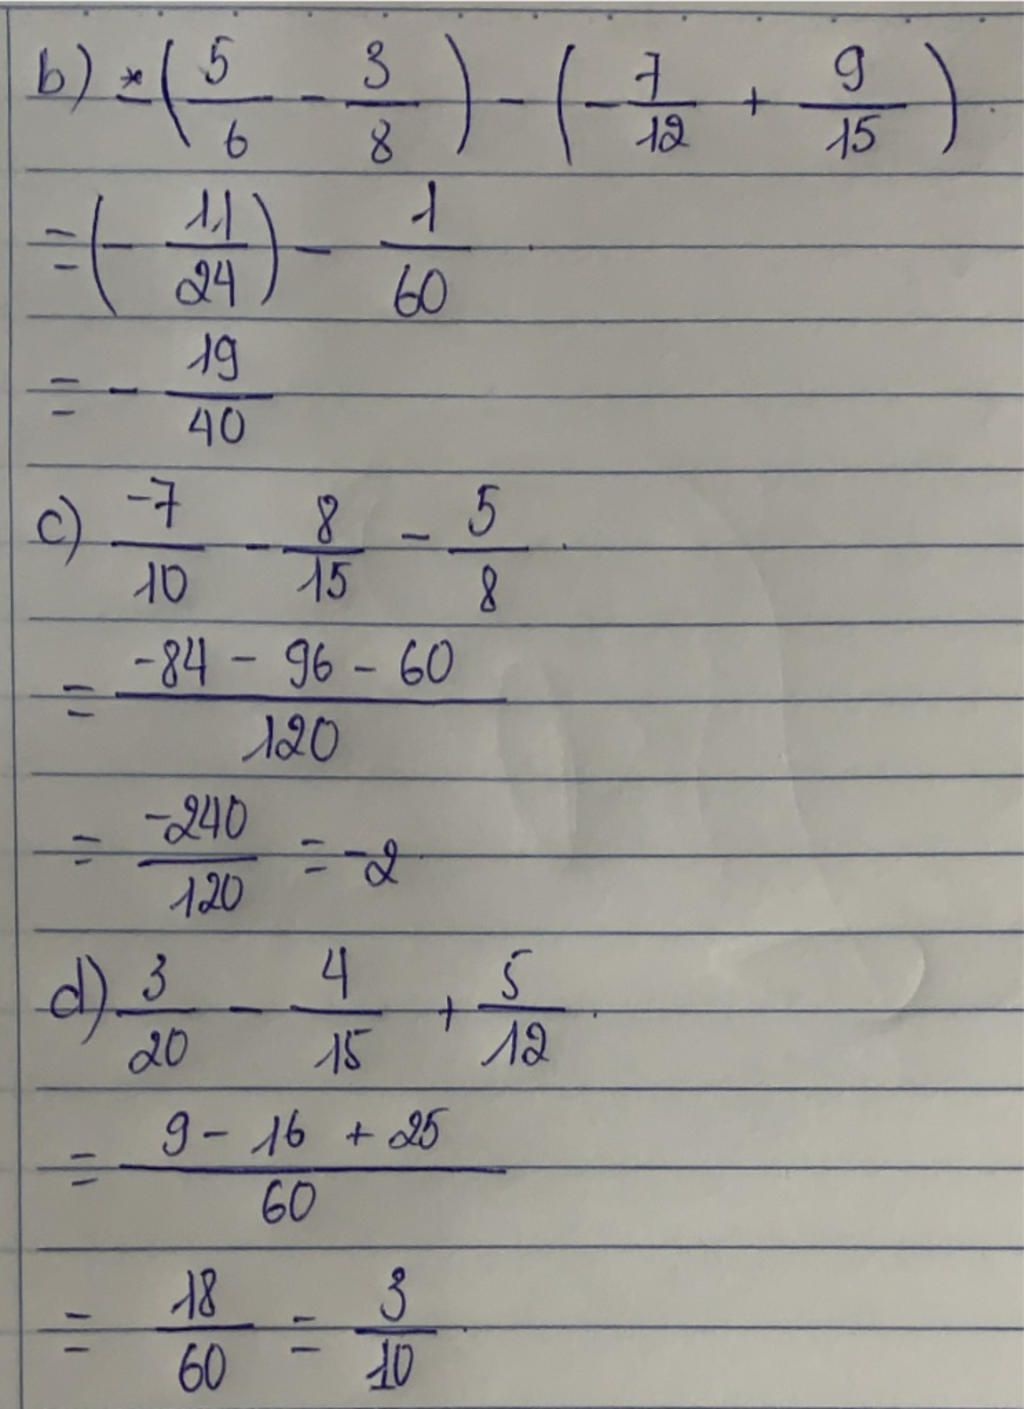 b) -(5/6 - 3/8) - (-7/12 + 9/15)
= (-11/24) - 1/60
= -19/40
c) -7/10 - 8/15 - 5/8
= (-84 - 96 - 60)/120
= -240/120 = -2
d) 3/20 - 4/15 + 5/12
= (9 - 16 + 25)/60
= 18/60 = 3/10